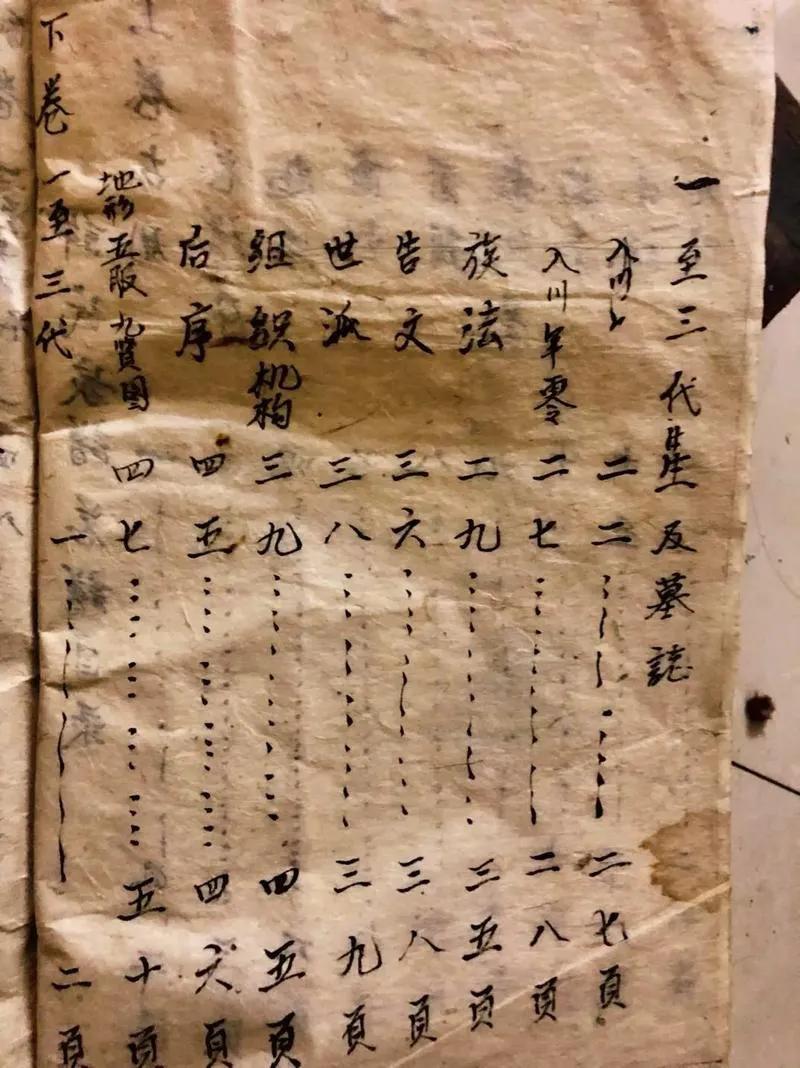 一至三代 及墓誌
入川 二二……二七頁
入川年零 二七……二八頁
族法 二九……三五頁
告文 三六……三八頁
世派 三八……三九頁
组织机构 三九……四五頁
后序 四五……四六頁
地形五版九贤图 四七……五十頁
下卷 一至三代 一……二頁